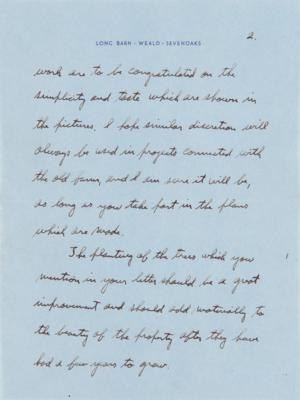 2.
LONG BARN · WEALD · SEVENOAKS
work are to be congratulated on the
simplicity and taste which are shown in
the pictures. I hope similar discretion will
always be used in projects connected with
the old farm, and I am sure it will be,
as long as you take part in the plans
which are made.
The planting of the trees which you
mention in your letter should be a great
improvement and should add materially to
the beauty of the property after they have
had a few years to grow.